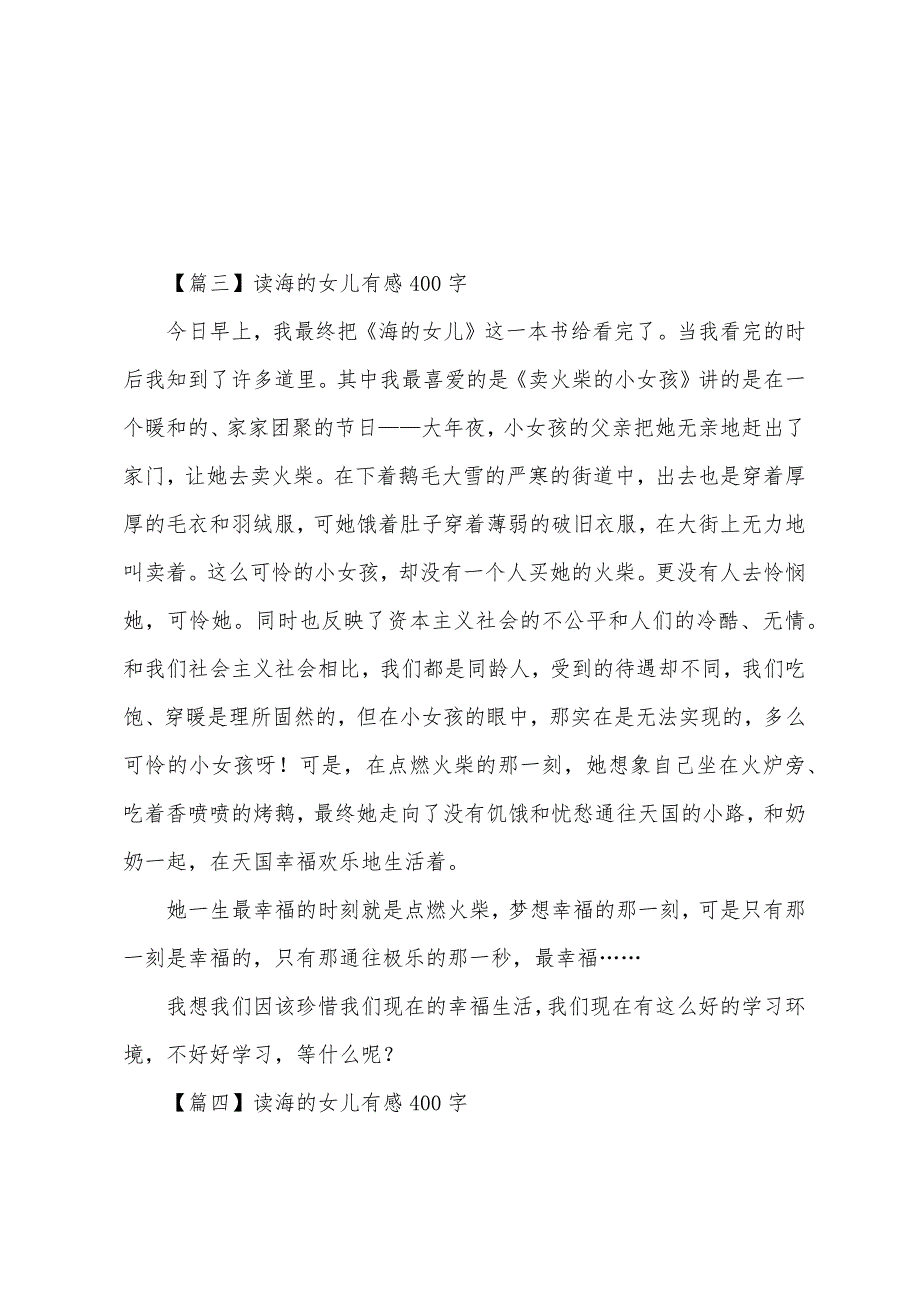 【篇三】读海的女儿有感 400 字
今日早上，我最终把《海的女儿》这一本书给看完了。当我看完的时
后我知到了许多道里。其中我最喜爱的是《卖火柴的小女孩》讲的是在一
个暖和的、家家团聚的节日——大年夜，小女孩的父亲把她无亲地赶出了
家门，让她去卖火柴。在下着鹅毛大雪的严寒的街道中，出去也是穿着厚
厚的毛衣和羽绒服，可她饿着肚子穿着薄弱的破旧衣服，在大街上无力地
叫卖着。这么可怜的小女孩，却没有一个人买她的火柴。更没有人去怜悯
她，可怜她。同时也反映了资本主义社会的不公平和人们的冷酷、无情。
和我们社会主义社会相比，我们都是同龄人，受到的待遇却不同，我们吃
饱、穿暖是理所固然的，但在小女孩的眼中，那实在是无法实现的，多么
可怜的小女孩呀！可是，在点燃火柴的那一刻，她想象自己坐在火炉旁、
吃着香喷喷的烤鹅，最终她走向了没有饥饿和忧愁通往天国的小路，和奶
奶一起，在天国幸福欢乐地生活着。
她一生最幸福的时刻就是点燃火柴，梦想幸福的那一刻，可是只有那
一刻是幸福的，只有那通往极乐的那一秒，最幸福……
我想我们因该珍惜我们现在的幸福生活，我们现在有这么好的学习环
境，不好好学习，等什么呢？
【篇四】读海的女儿有感 400 字